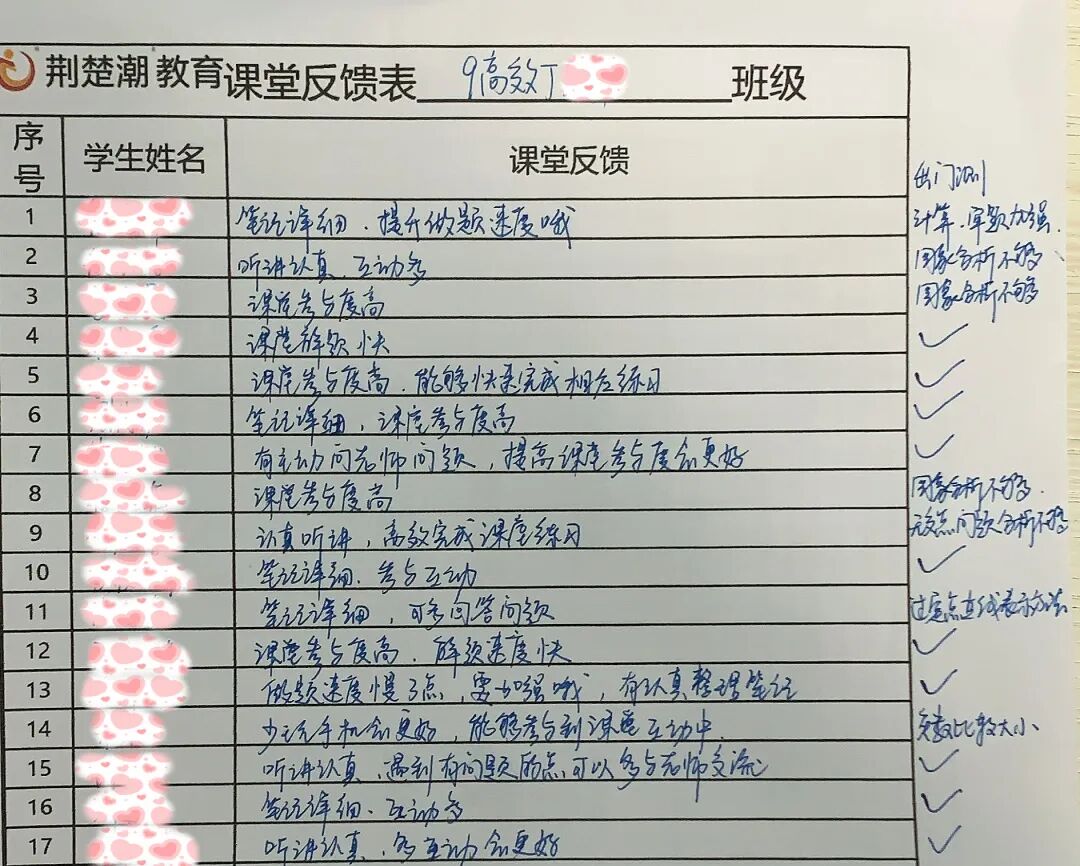 荆楚潮 教育 课堂反馈表 9高效J 班级
序号 学生姓名 课堂反馈 出门测
1 笔记详细、提升做题速度哦 计算、审题加强.
2 听讲认真、互动多 图象分析不够
3 课堂参与度高 图象分析不够
4 课堂解题快 ✓
5 课堂参与度高、能够快速完成相应练习 ✓
6 笔记详细，课堂参与度高 ✓
7 有主动问老师问题，提高课堂参与度会更好 ✓
8 课堂参与度高 图象分析不够.
9 认真听讲，高效完成课堂练习 问题分析不够
10 笔记详细、参与互动 ✓
11 笔记详细，可多回答问题 过定点直线表示方法
12 课堂参与度高、解题速度快 ✓
13 做题速度慢了点，要加强哦，有认真整理笔记 ✓
14 少玩手机会更好，能够参与到课堂互动中. 比较大小
15 听讲认真、遇到有问题的点可以多与老师交流 ✓
16 笔记详细、互动多 ✓
17 听讲认真、多互动会更好 ✓